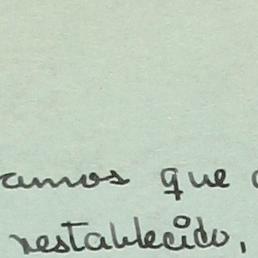 amos que
restablecido,